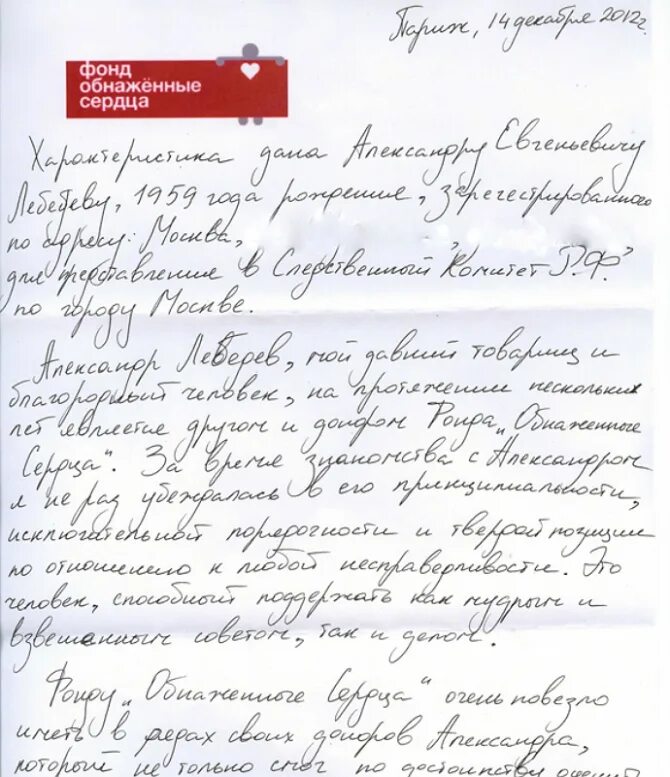 Париж, 14 декабря 2012г.
фонд
обнажённые
сердца
Характеристика дана Александру Евгеньевичу
Лебедеву, 1959 года рождения, зарегестрированного
по адресу: Москва,
для представления в Следственный "Комитет Р.Ф."
по городу Москве.
Александр Лебедев, мой давний товарищ и
благородный человек, на протяжении нескольких
лет является другом и донором Фонда „Обнаженные
Сердца“. За время знакомства с Александром
я не раз убеждалась в его принципиальности,
исключительной порядочности и твердой позиции
по отношению к любой несправедливости. Это
человек, способный поддержать как мудрым и
взвешенным советом, так и делом.
Фонду „Обнаженные Сердца“ очень повезло
иметь в рядах своих доноров Александра,
который не только смог по достоинству оценить